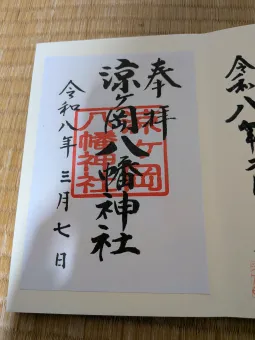 奉拝
涼ヶ岡八幡神社
涼ヶ岡
八幡神社
令和八年三月七日
令和八年